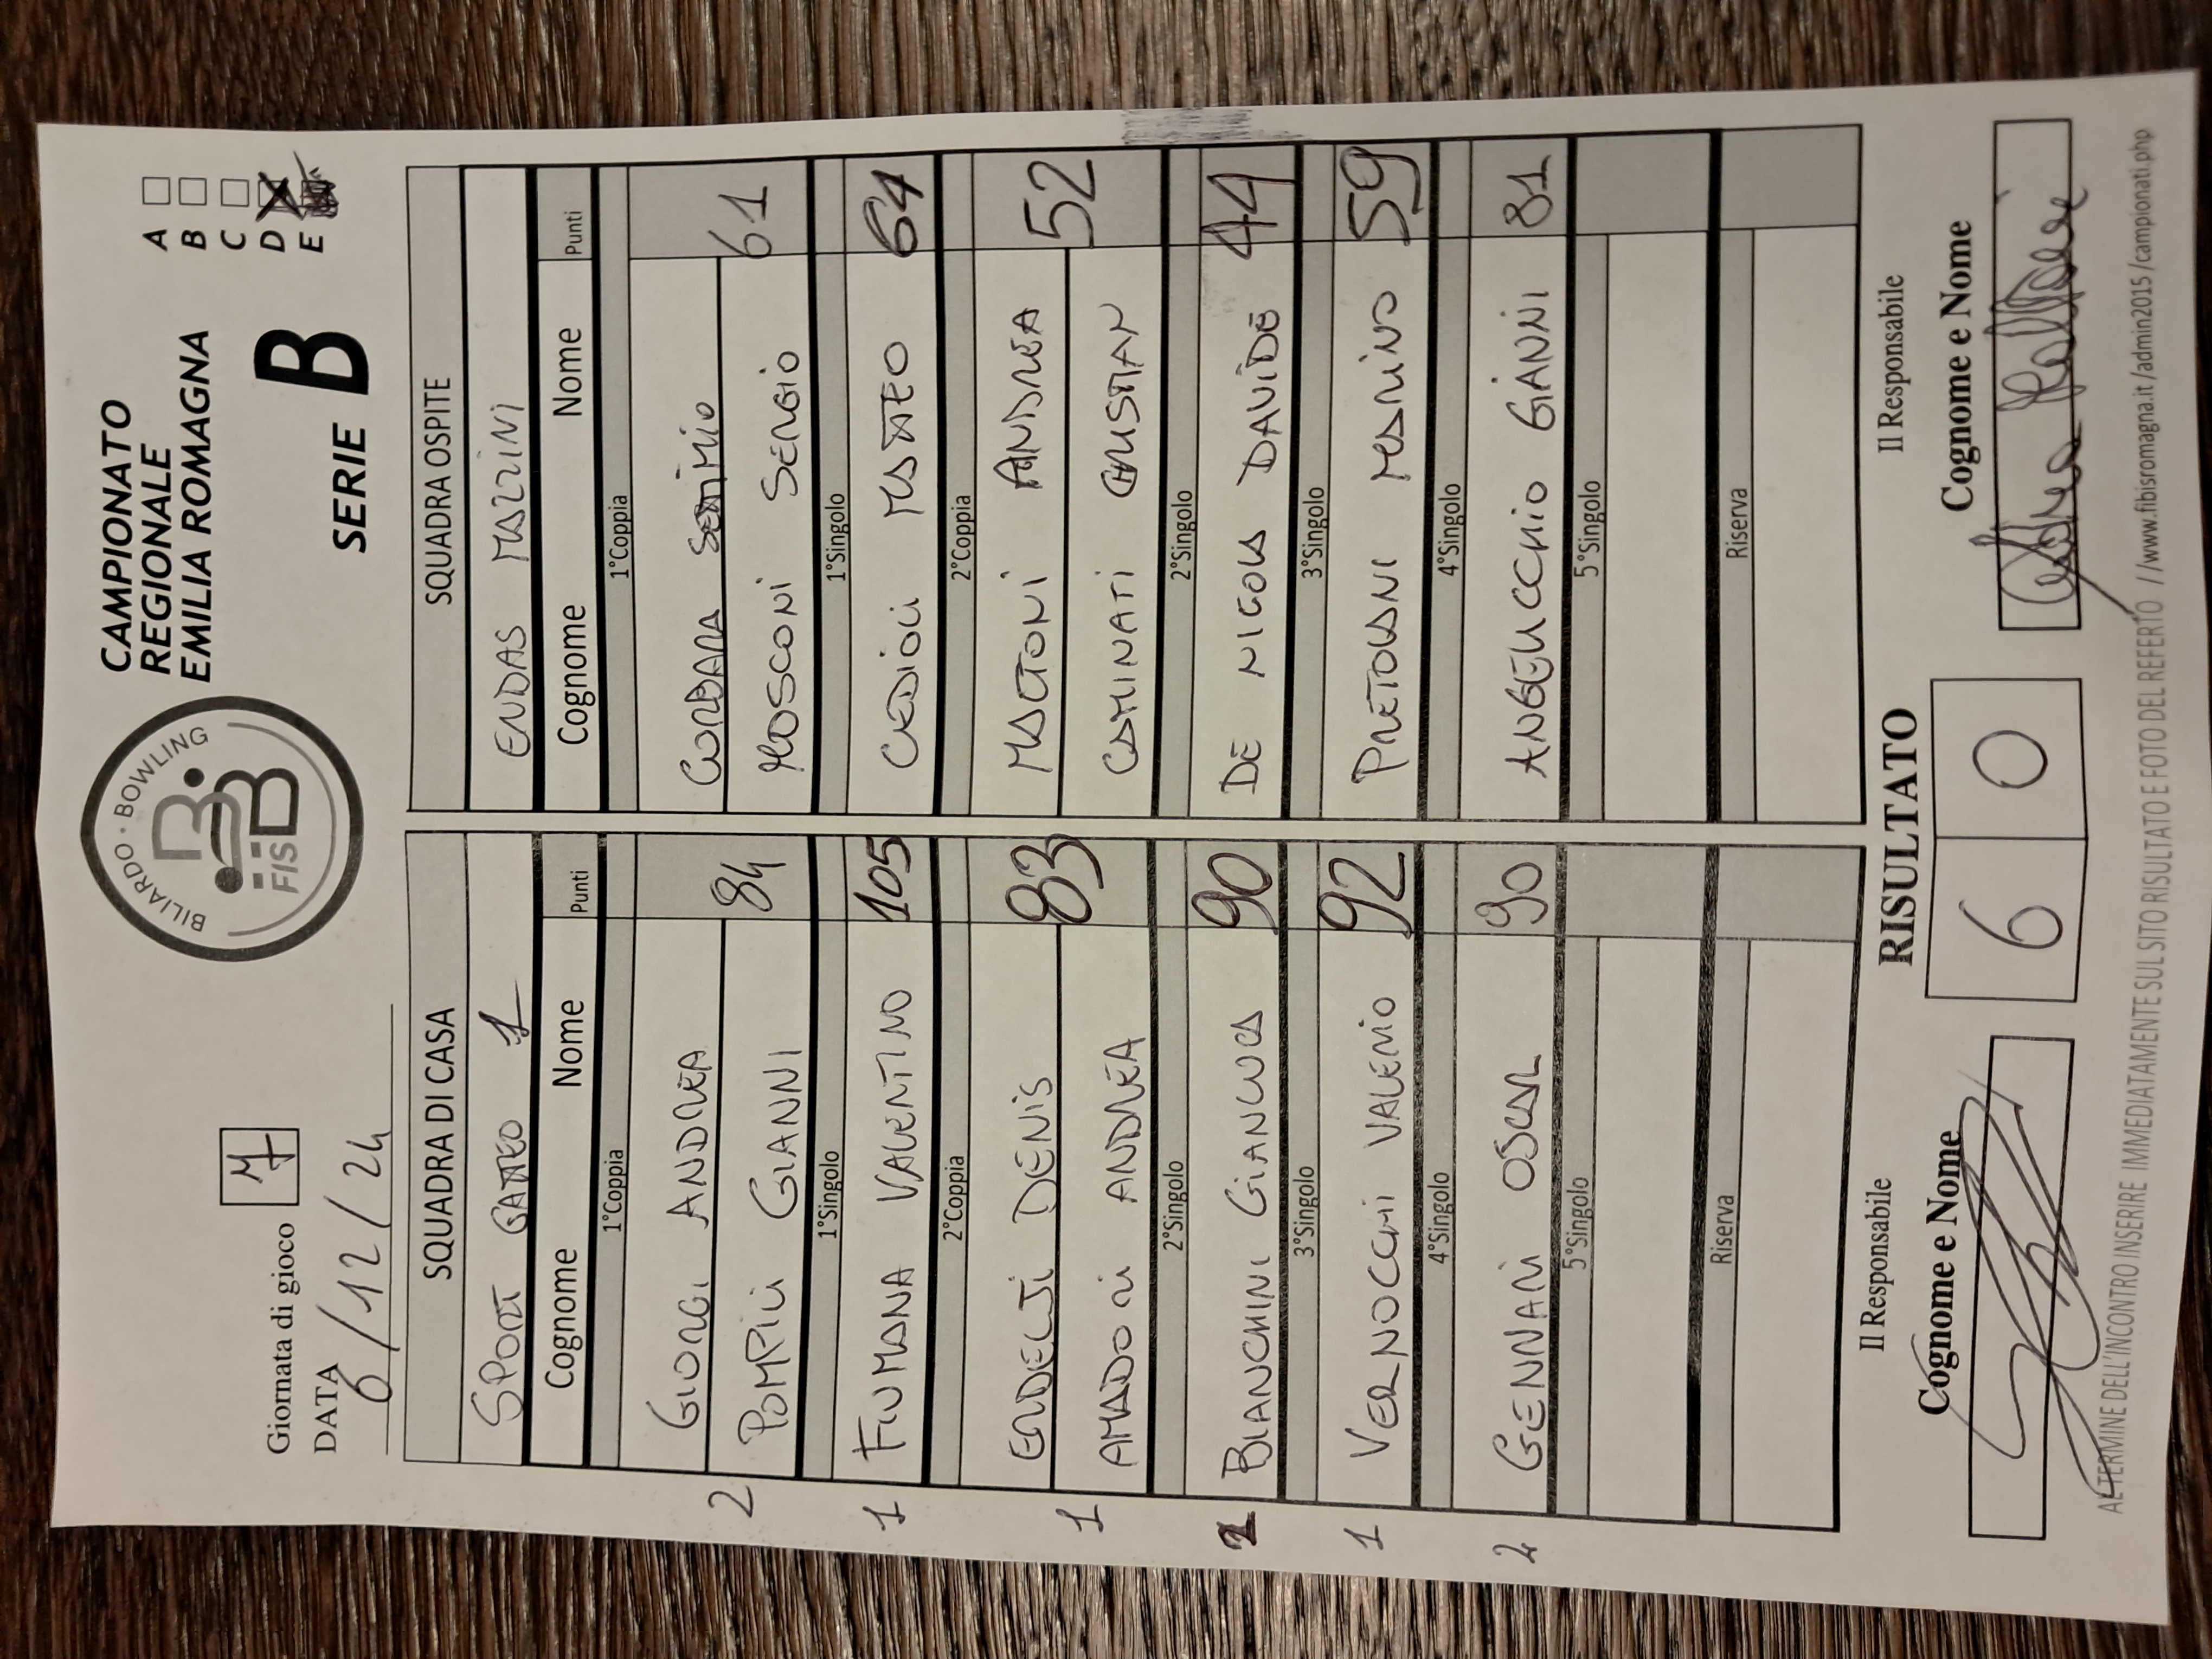 BILIARDO · BOWLING
FISBB
CAMPIONATO
REGIONALE
EMILIA ROMAGNA
SERIE B
A
B
C
D
E
Giornata di gioco 7
DATA 6/12/24
SQUADRA DI CASA
SPORT GATTEO 1
Cognome Nome Punti
1°Coppia
GIORGI ANDREA
2 POMPILI GIANNI 84
1°Singolo
1 FIUMANA VALENTINO 105
2°Coppia
ERDELJI DENIS 83
1 AMADORI ANDREA
2°Singolo
BIANCHINI GIANLUCA 90
3°Singolo
1 VERNOCCHI VALERIO 92
4°Singolo
2 GENNARI OSCAR 90
5°Singolo
Riserva
SQUADRA OSPITE
ENDAS MAZZINI
Cognome Nome Punti
1°Coppia
CORBARA SETTIMIO
MOSCONI SERGIO 61
1°Singolo
CEDIOLI MATTEO 64
2°Coppia
MAGTONI ANDREA 52
CAMINATI CRISTIAN
2°Singolo
DE NICOLA DAVIDE 44
3°Singolo
PRETOLANI MARINO 59
4°Singolo
ANGELUCCHIO GIANNI 81
5°Singolo
Riserva
Il Responsabile
Cognome e Nome
RISULTATO
6 0
Il Responsabile
Cognome e Nome
AL TERMINE DELL'INCONTRO INSERIRE IMMEDIATAMENTE SUL SITO RISULTATO E FOTO DEL REFERTO //www.fibisromagna.it /admin2015 /campionati.php